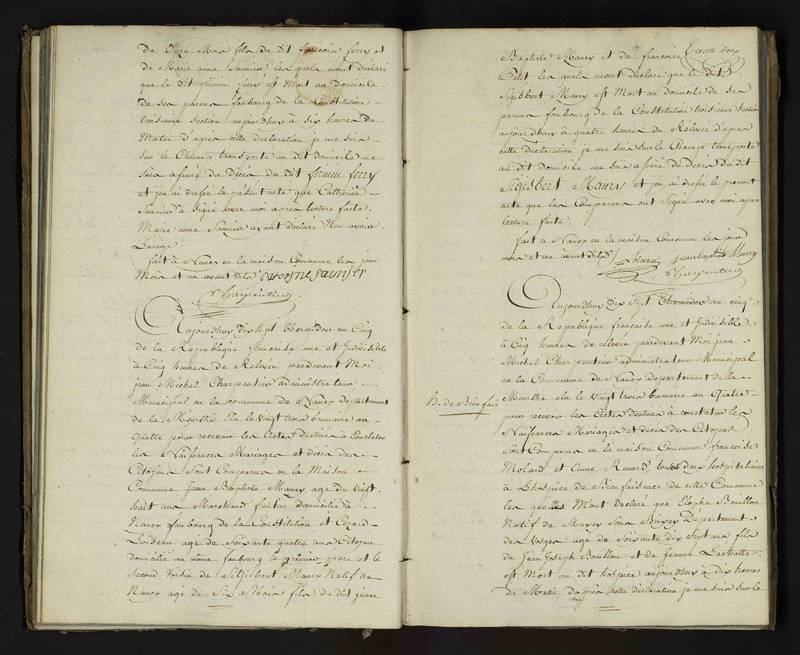 de Onze Mois fils du dit françois ferry et
de Marie anne Saunier les quels m'ont déclaré
que le dit firmin ferry est Mort au domicile
de ses pareus faubourg de la Constitution
troisieme Section aujourdhuy à Six heures du
Matin d'après cette déclaration je me suis
Sur le Champ transporté au dit domicile me
suis assuré du Décès du dit firmin ferry
et j'en ai dressé le présent acte que Catherine
Saunier à Signé avec moi après lecture faite.
Marie anne Saunier ayant déclaré N'en avoir
L'usage
fait à Nancy en la maison Commune les jour
Mois et an avant dits Saunier
Charpentier
Aujourdhuy dix Sept thermidor an Cinq
de la République francaise une et Indivisible
à Cinq heures de Relevée pardevant Moi
jean Michel Charpentier administrateur
Municipal de la commune de Nancy département
de la Meurthe Elu le vingt trois brumaire an
Quatre pour recevoir les Actes destinés à Constater
les Naissances Mariages et décès des
Citoyens Sont Comparus en la Maison
Commune Jean Baptiste Maury agé de vingt
huit ans Marchand fruitier domicilié à
Nancy faubourg de la Constitution et
Loiseau agé de Soixante quatre ans Citoyen
domicilié au même faubourg le premier père et le
Second Voisin de Sigisbert Maury Natif de
Nancy agé de Six Mois fils du dit jean
Baptiste Maury et de francoise
Petit les quels m'ont déclaré que le dit
Sigisbert Maury est Mort au domicile de ses
pareus faubourg de la Constitution troisieme Section
aujourdhuy à quatre heures de Relevée d'après
cette déclaration je me suis sur le Champ transporté
au dit domicile me suis assuré du Décès du dit
Sigisbert Maury et j'en ai dressé le présent
acte que les Comparans ont Signé avec moi après
lecture faite
fait à Nancy en la maison Commune les jour
mois et an avant dits Loiseau jean baptiste Maury
Charpentier
Aujourdhuy Dix Sept thermidor an cinq
de la République francaise une et Indivisible
à Cinq heures de relevée pardevant Moi jean
Michel Charpentier administrateur Municipal
en la Commune de Nancy département de la
B. de Bienfais
Meurthe élu le vingt trois brumaire an Quatre
pour recevoir les Actes destinés à constater les
Naissances Mariages et décès des Citoyens
Sont Comparus en la maison Commune francoise
Molard et Anne toutes deux hospitalieres
à L'hospice de Bienfaisance de cette Commune
les quelles M'ont déclaré que Bouillon
Natif de Maxey Sous Département
des Vosges agé de Soixante dix Sept ans fils
de Jean Joseph Bouillon et de Jeanne
est Mort au dit hospice aujourdhuy à dix heures
du Matin d'après cette déclaration je me suis sur le